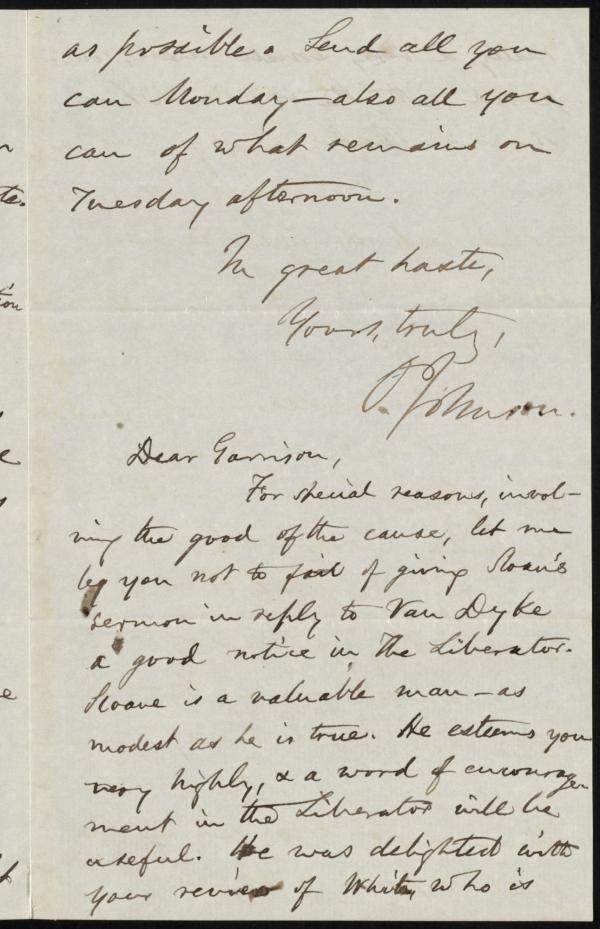 as possible. Send all you
can Monday—also all you
can of what remains on
Tuesday afternoon.
In great haste,
Yours, truly,
O. Johnson.
Dear Garrison,
For special reasons, invol-
ving the good of the cause, let me
beg you not to fail of giving Sloan's
sermon in reply to Van Dyke
a good notice in The Liberator.
Sloane is a valuable man—as
modest as he is true. He esteems you
very highly, & a word of encourage-
ment in the Liberator will be
useful. He was delighted with
your review of White, who is